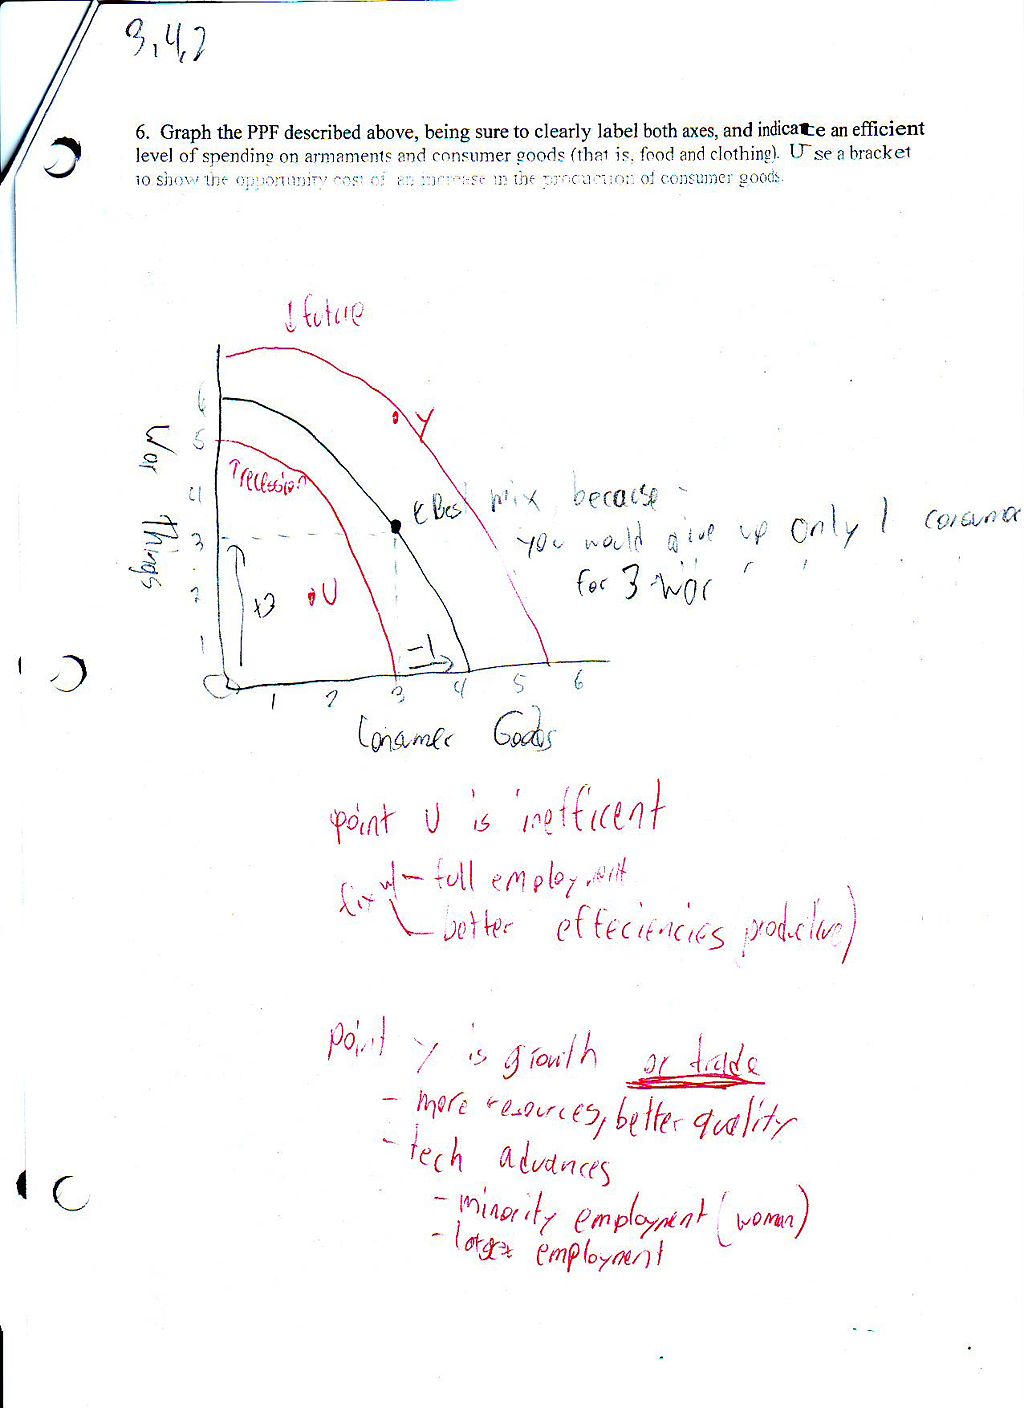 3,4,2
6. Graph the PPF described above, being sure to clearly label both axes, and indicate an efficient
level of spending on armaments and consumer goods (that is, food and clothing). Use a bracket
to show the opportunity cost of an increase in the production of consumer goods.
↓ future
6
5
4
3
2
1
War Things
Y
↑ recession
← Best mix because
you would give up only 1 consumer
for 3 war
U
+3
-1
0 1 2 3 4 5 6
Consumer Goods
point U is inefficent
fix w/ - full employment
better effeciencies productive)
point y is growth or trade
- more resources, better quality
- tech advances
- minority employment (woman)
- employment